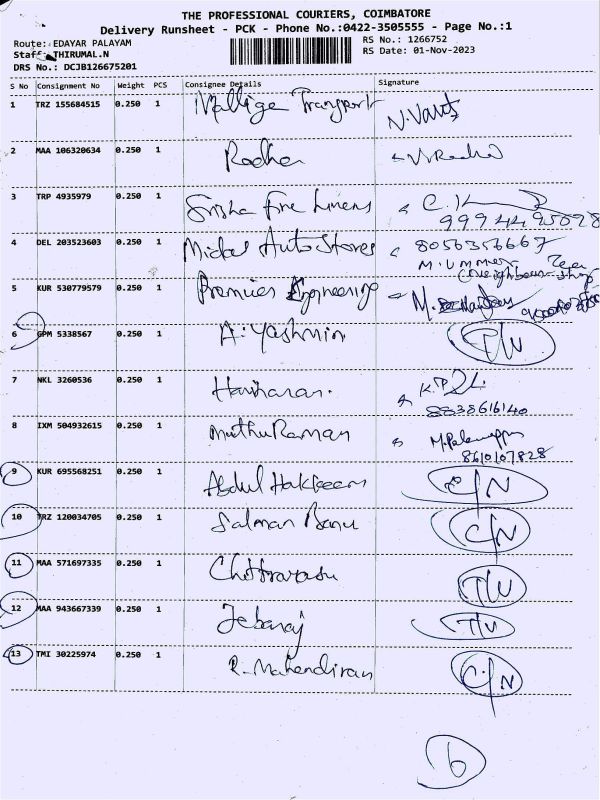 THE PROFESSIONAL COURIERS, COIMBATORE
Delivery Runsheet - PCK - Phone No.:0422-3505555 - Page No.:1
Route: EDAYAR PALAYAM
RS No.: 1266752
Staff: THIRUMAL.N
RS Date: 01-Nov-2023
DRS No.: DCJB126675201
S No Consignment No Weight PCS Consignee Details Signature
1 TRZ 155684515 0.250 1 Mallige Transport
2 MAA 106320634 0.250 1 Radha V.Radha
3 TRP 4935979 0.250 1 Srisha Fire Linens
4 DEL 203523603 0.250 1 Mickel Auto Stores 8056356667
M.Ummer
(neighbour shop
5 KUR 530779579 0.250 1 Premier Engineering
6 GPM 5338567 0.250 1 A. Yashmin T/W
7 NKL 3260536 0.250 1 Hariharan.
8838616140
8 IXM 504932615 0.250 1 MuthuRaman
8610107828
9 KUR 695568251 0.250 1 Abdul Hakkeem C/N
10 TRZ 120034705 0.250 1 Salman Banu C/N
11 MAA 571697335 0.250 1 Chittravasu T/W
12 MAA 943667339 0.250 1 Jebaraj T/W
13 TMI 30225974 0.250 1 R. Mahendiran C/N
6